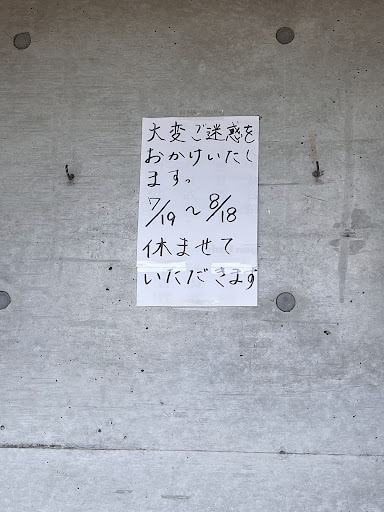 大変ご迷惑を
おかけいたく
ます。
7/19〜8/18
休ませて
いただきます